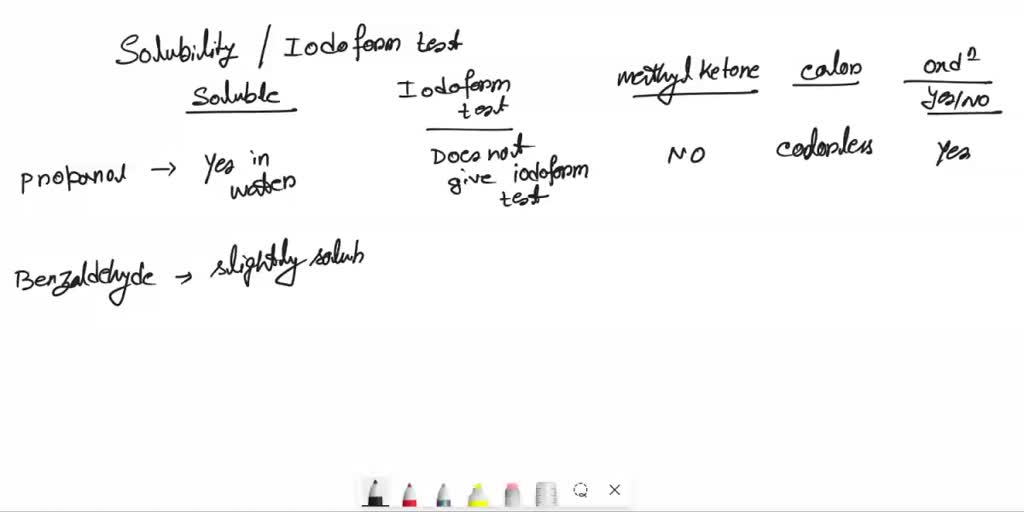 Solubility / Iodoform test
Soluble Iodoform test methyl ketone color oxd² Yes/NO
Propanal → Yes in water Does not give iodoform test NO colorless Yes
Benzaldehyde → slightly solub